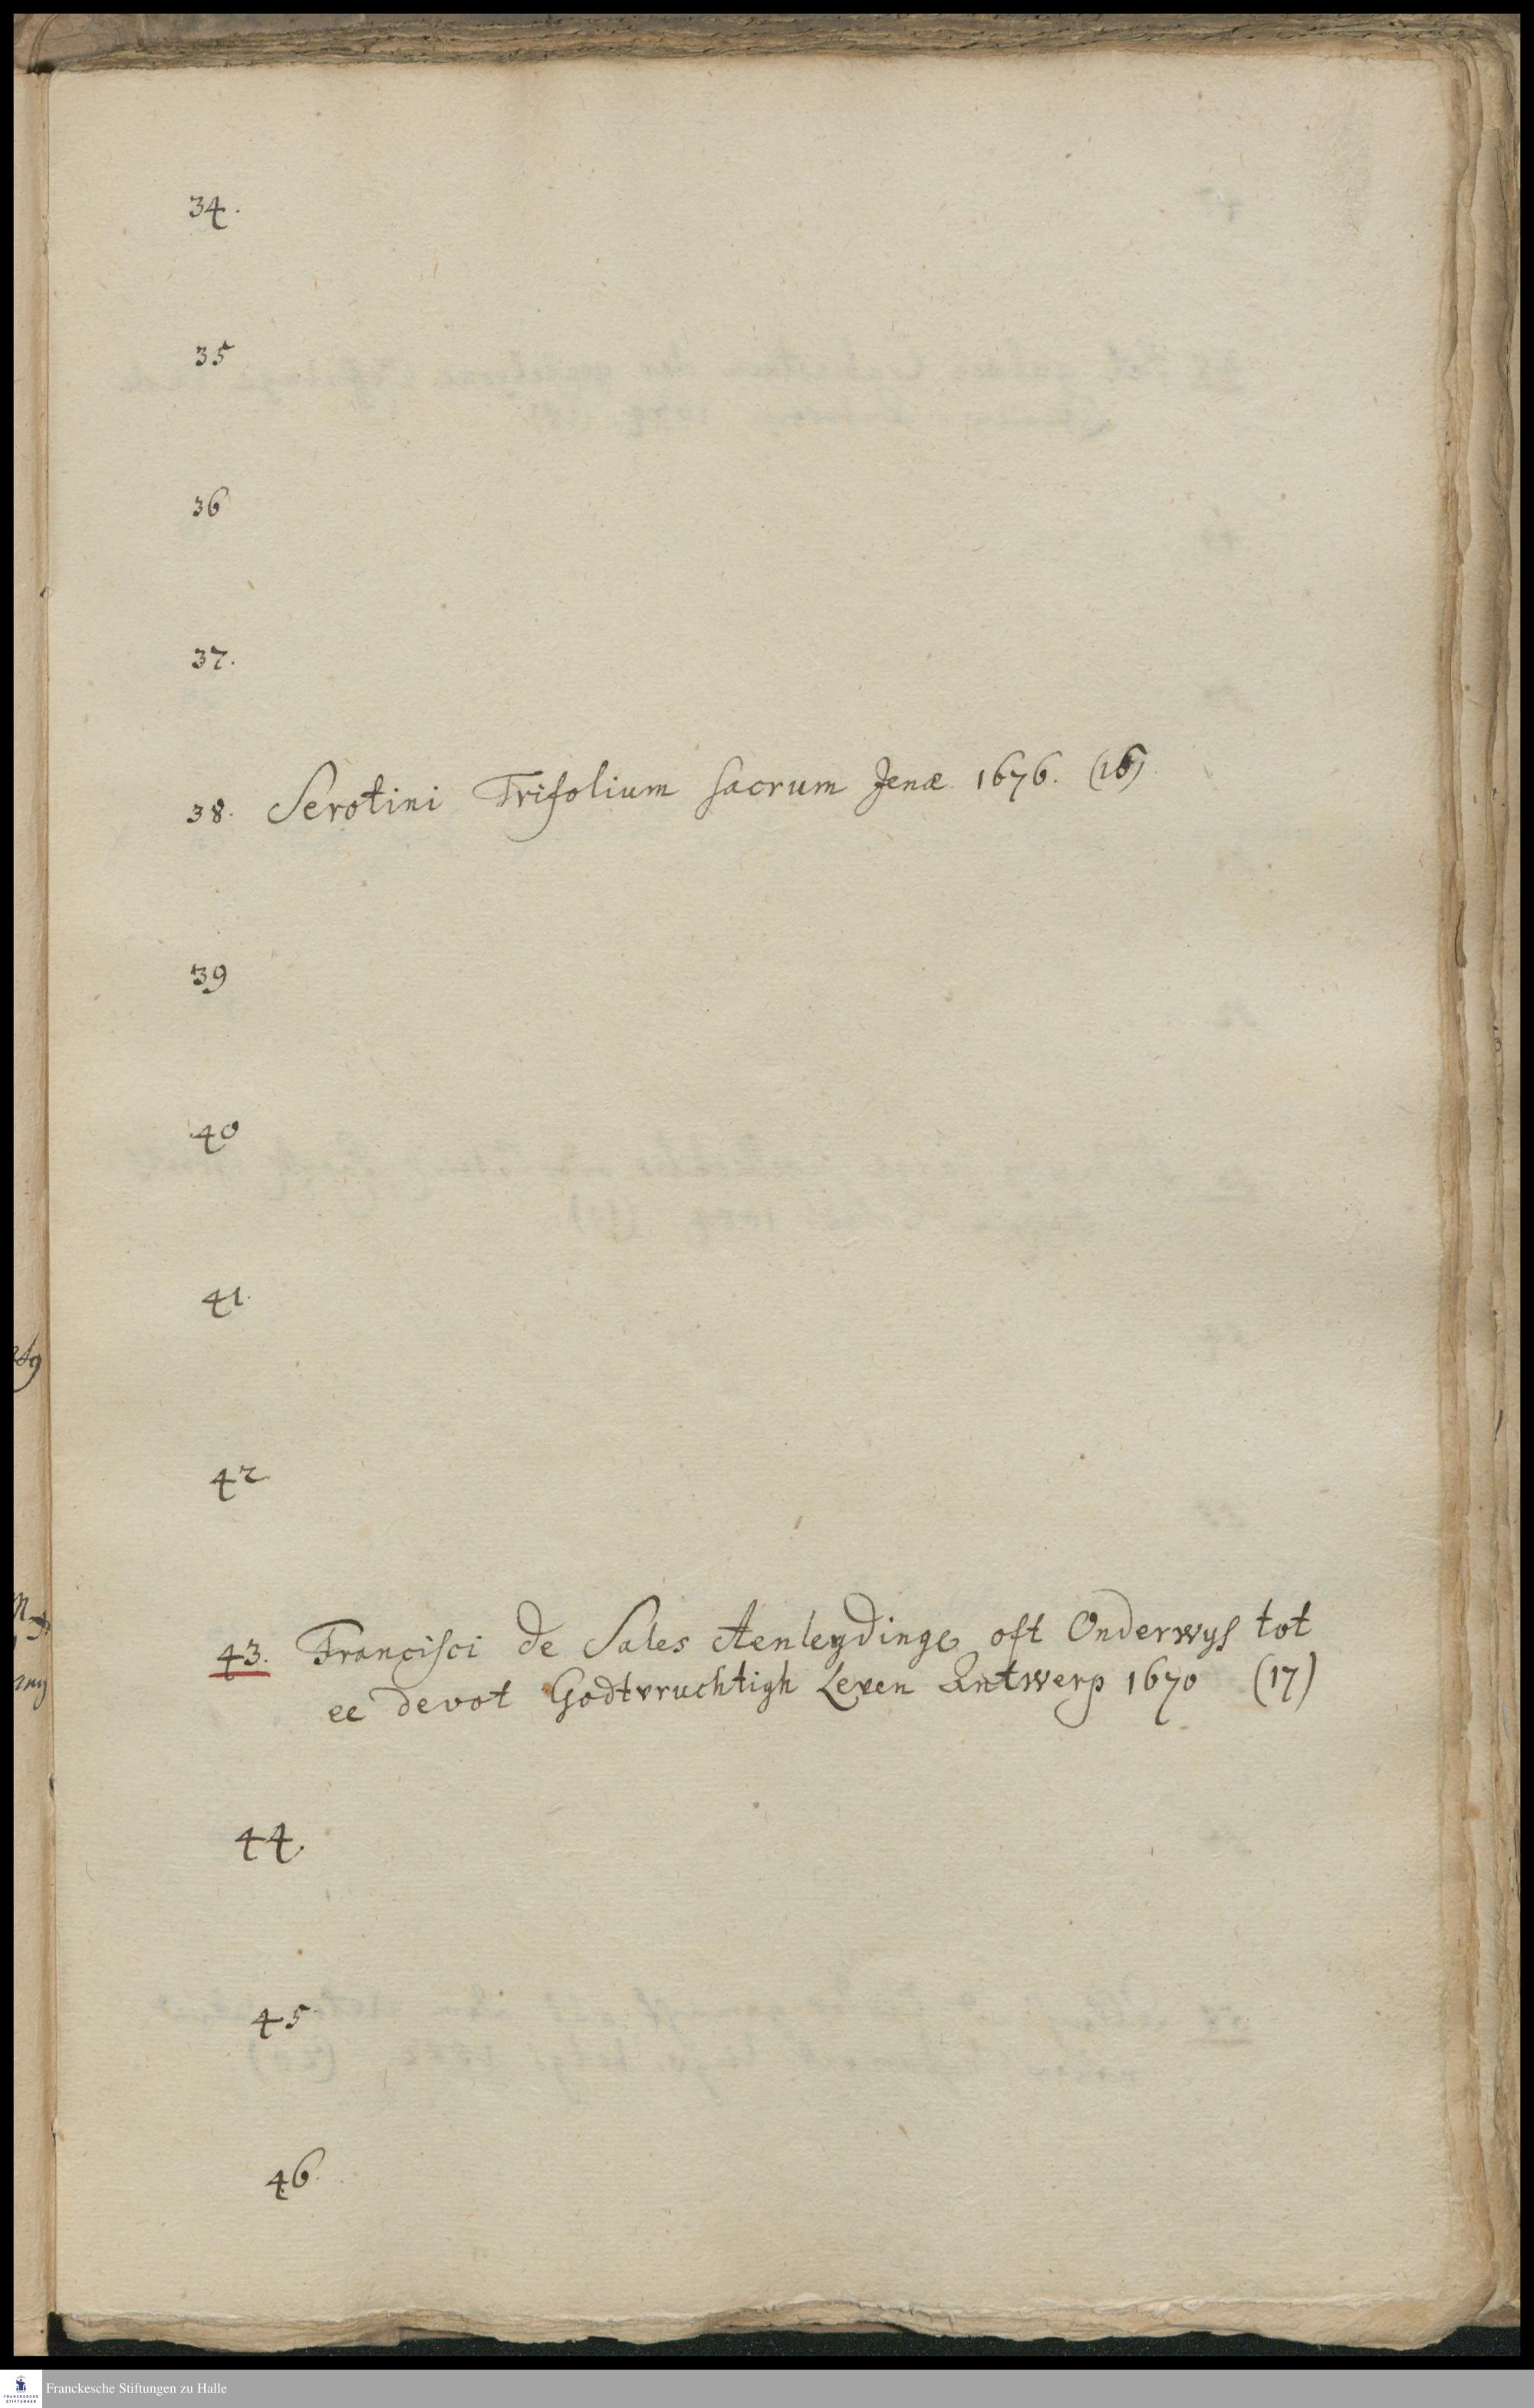 34.
35
36
37.
38. Serotini Trifolium sacrum Jenæ 1676. (16)
39
40
41.
42
43. Francisci de Sales Aenleydinge oft Onderwys tot
ee devot Godtvruchtigh Leven Antwerp 1670 (17)
44.
45
46.
Franckesche Stiftungen zu Halle